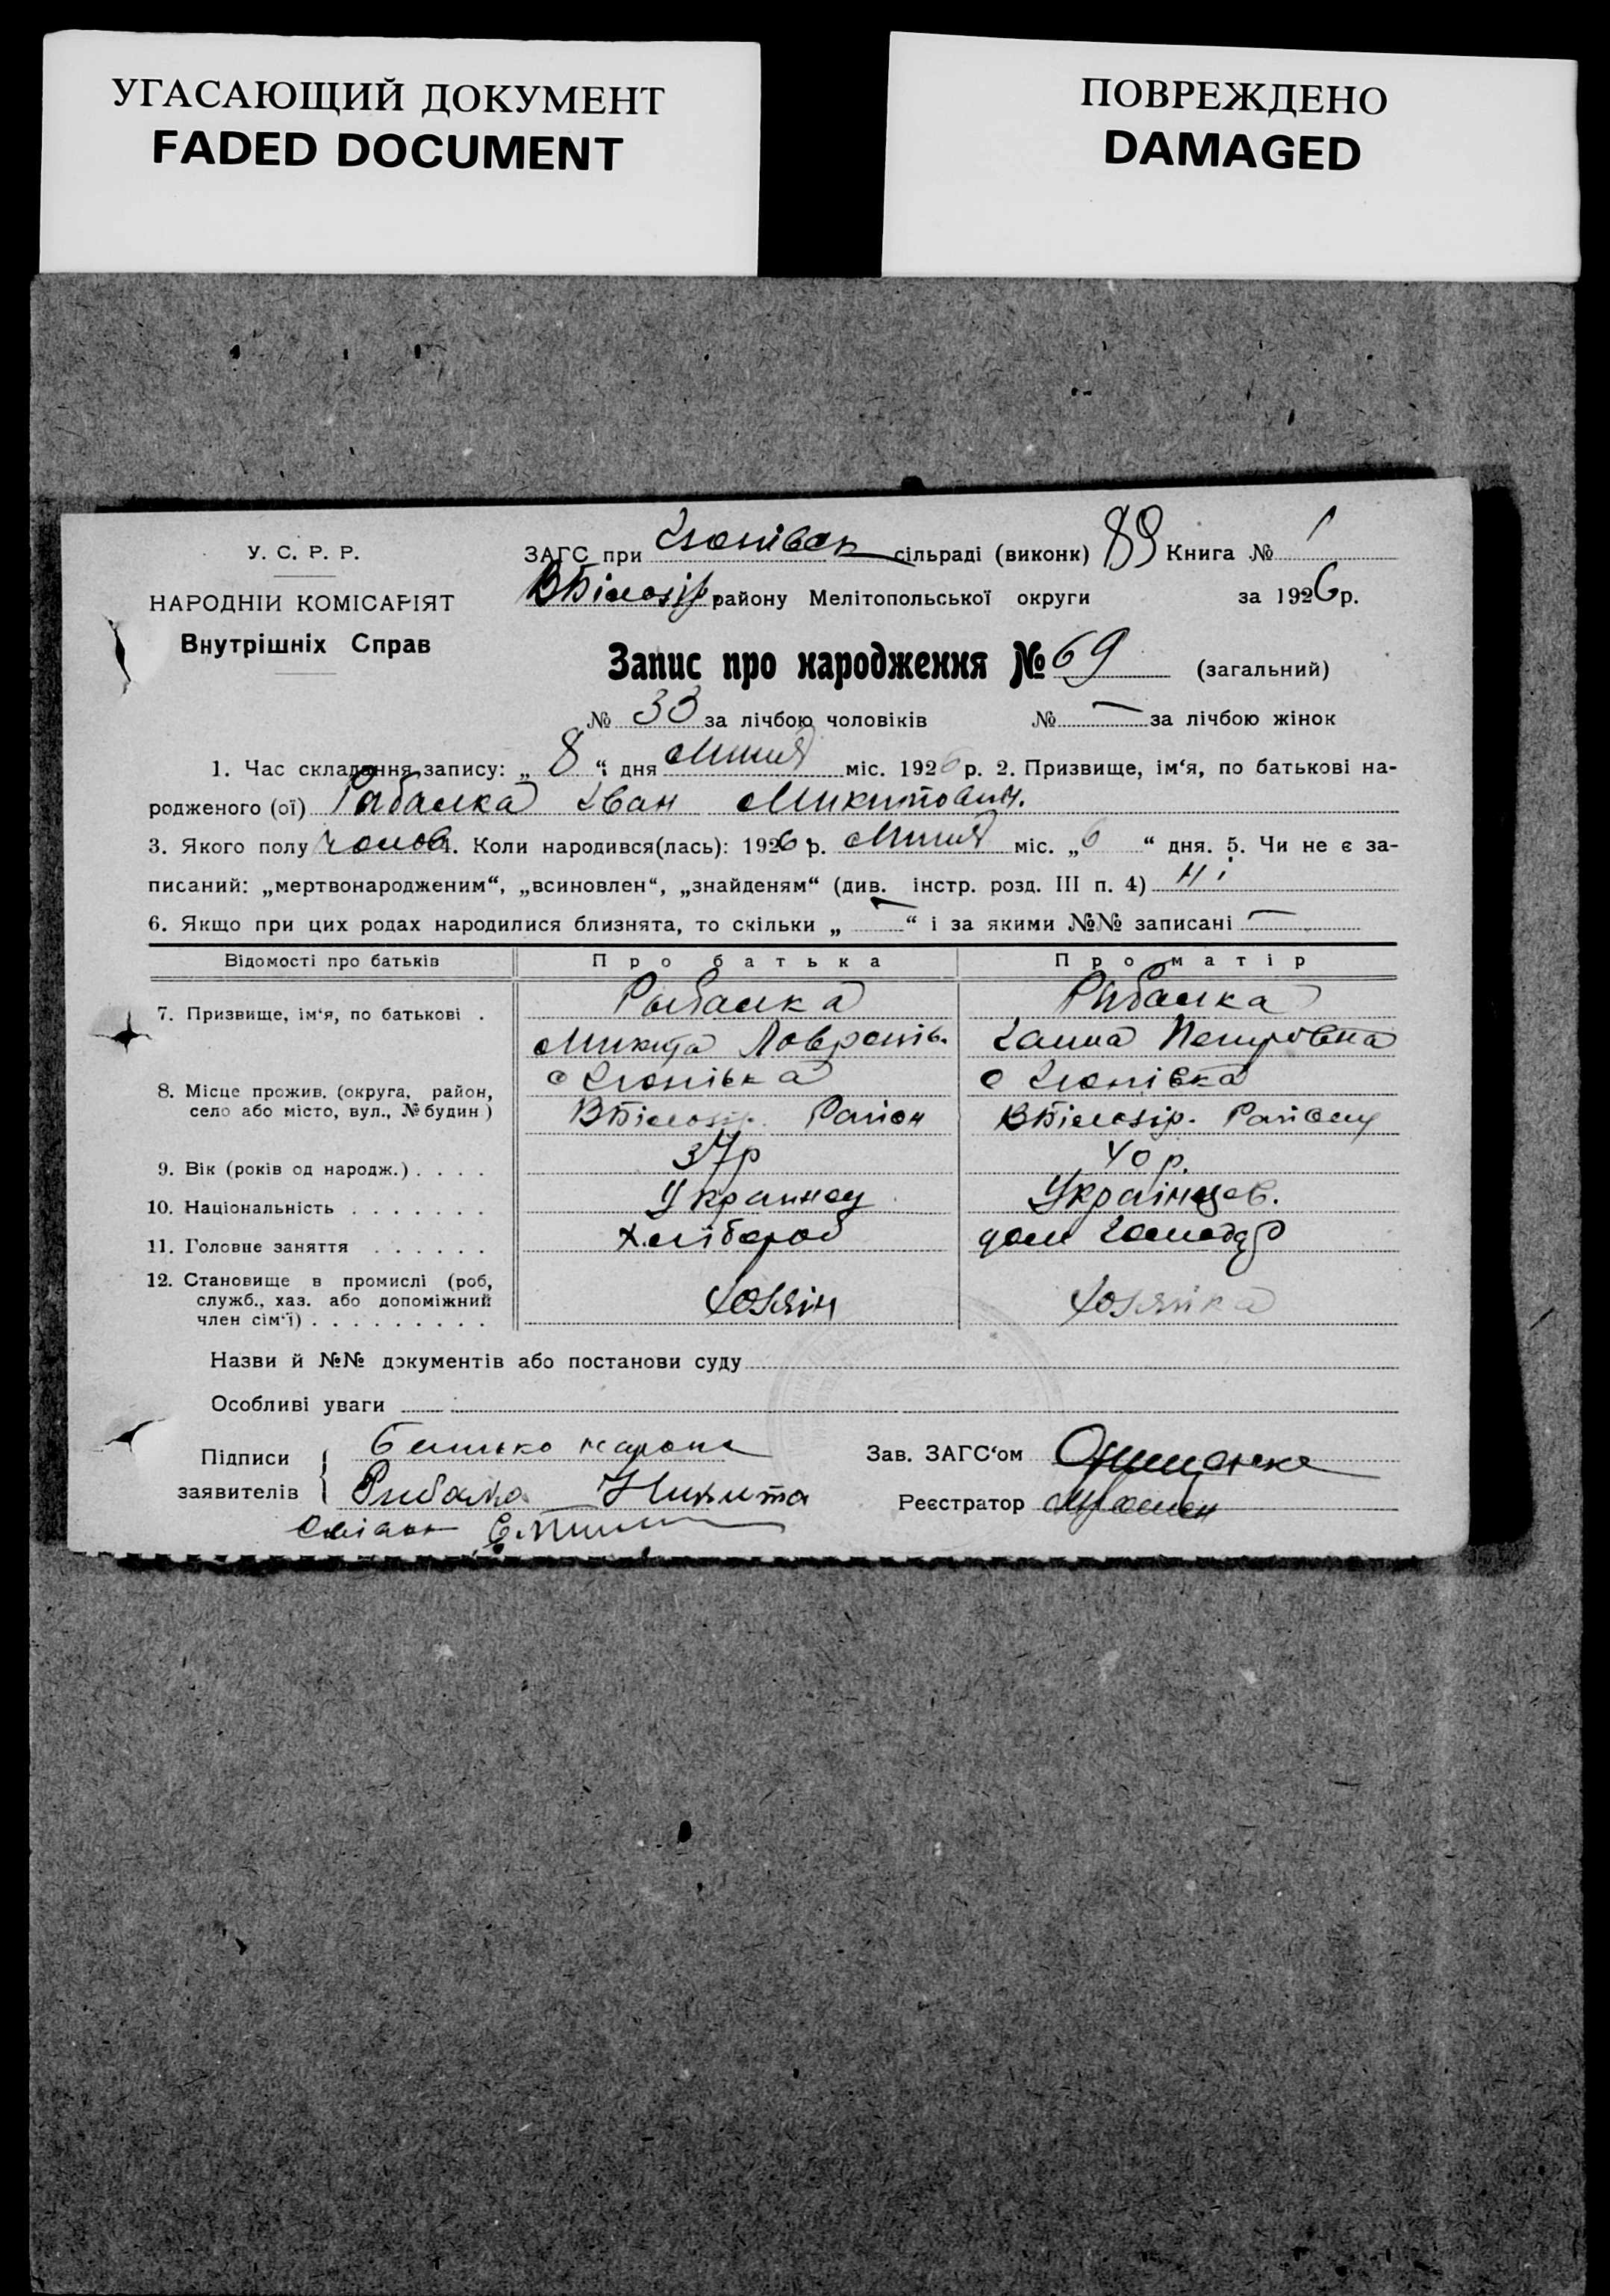 УГАСАЮЩИЙ ДОКУМЕНТ
FADED DOCUMENT
ПОВРЕЖДЕНО
DAMAGED
У. С. Р. Р.
НАРОДНІЙ КОМІСАРІЯТ
Внутрішніх Справ
ЗАГС при сільраді (виконк) 89 Книга № 1
ВБілозір. району Мелітопольської округи за 1926 р.
Запис про народження № 69 (загальний)
№ 33 за лічбою чоловіків № — за лічбою жінок
1. Час складання запису: „ 8 “ дня міс. 1926 р. 2. Призвище, ім‘я, по батькові на-
родженого (ої) Рибалка Іван Микитович.
3. Якого полу чолов 4. Коли народився(лась): 1926 р. міс. „ 6 “ дня. 5. Чи не є за-
писаний: „мертвонародженим“, „всиновлен“, „знайденям“ (див. інстр. розд. III п. 4) Ні
6. Якщо при цих родах народилися близнята, то скільки „ — “ і за якими №№ записані —
Відомості про батьків Про батька Про матір
7. Призвище, ім‘я, по батькові . Рибалка Рибалка
Микита Лавренів. Ганна Петровна
8. Місце прожив. (округа, район,
село або місто, вул., № будин)
ВБілозір. Район ВБілозір. Району
9. Вік (років од народж.) . . . . 37р 40 р.
10. Національність . . . . . . . Украинец Українцев.
11. Головне заняття . . . . . . Хлібороб дом господар
12. Становище в промислі (роб,
служб., хаз. або допоміжний
член сім‘ї) . . . . . . . . . Хозяін Хозяйка
Назви й №№ документів або постанови суду
Особливі уваги
Підписи
заявителів Рибалка Никита
Зав. ЗАГС‘ом Онищенко
Реєстратор